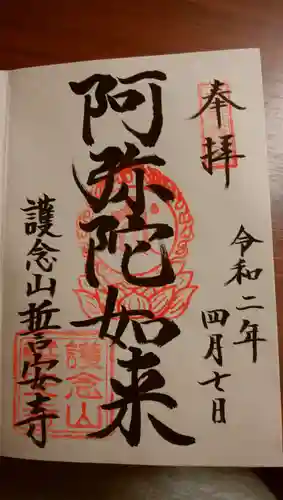 奉拝
令和二年
四月七日
阿弥陀如来
護念山誓安寺
護念山